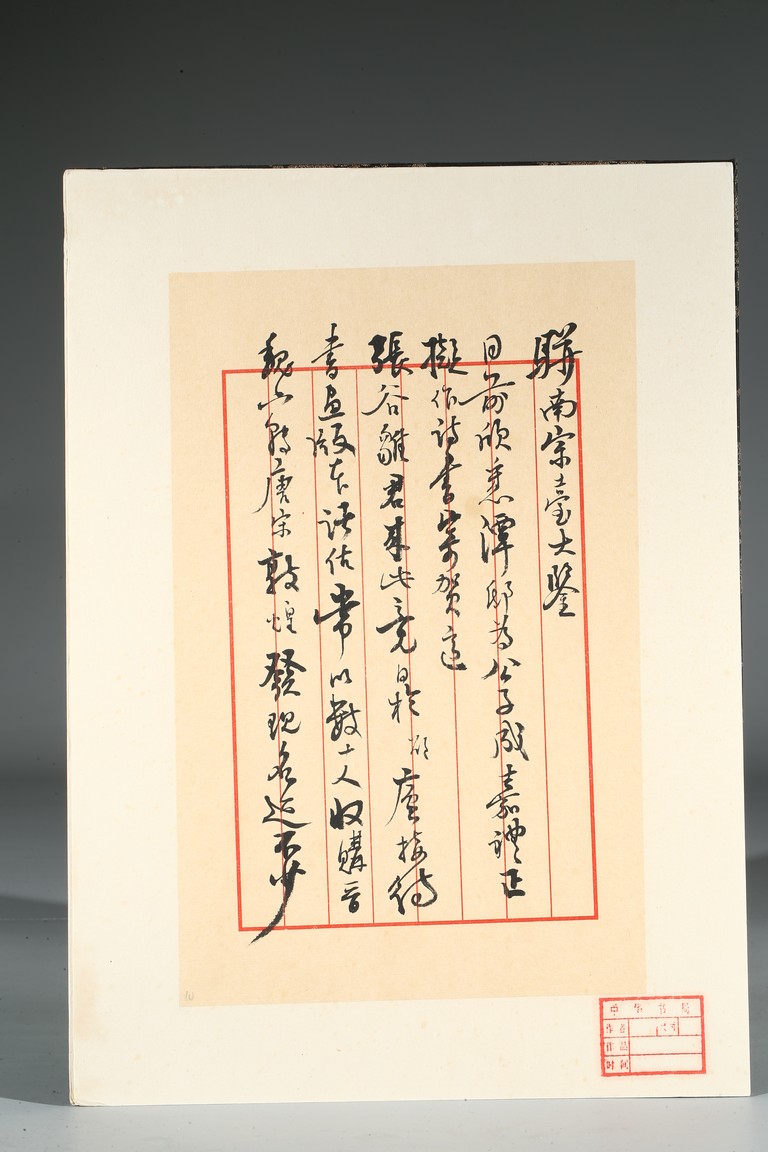 南宗臺大鑒
日前欣悉潭邸为公子成嘉禮正
擬作詩書寄賀適
張谷雛君來此竟日於 廬接待
書畫版本諸估常以數十人收購晉
魏六朝唐宋敦煌發現名迹不少
中华书局
作者
作品
时间